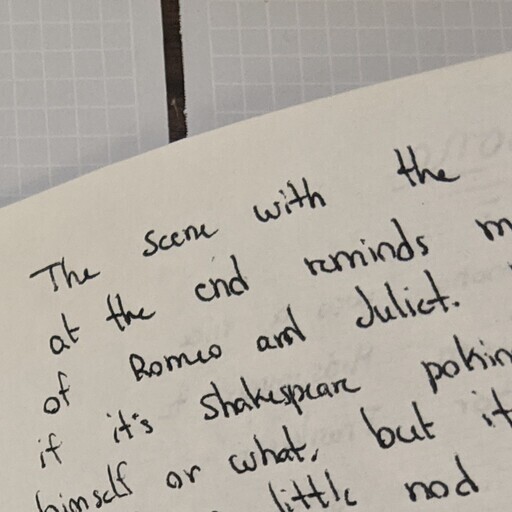 The scene with the
at the end reminds
of Romeo and Juliet.
if it's Shakespeare
himself or what, but
little nod